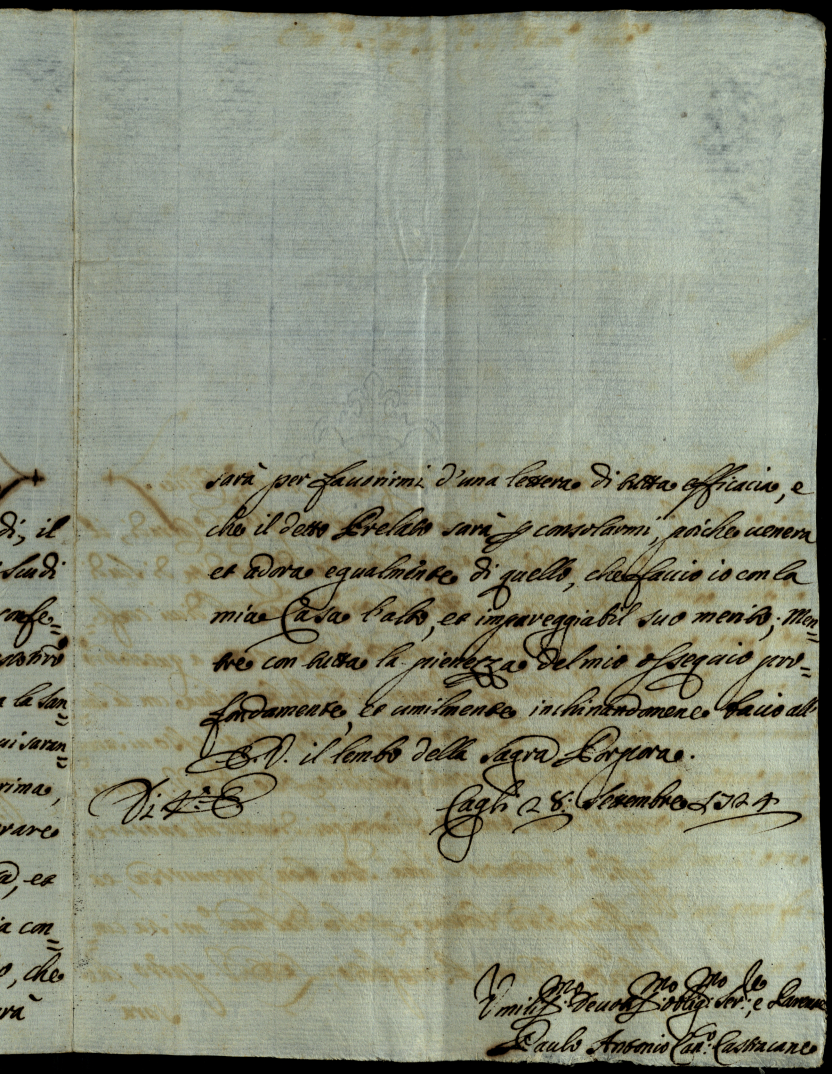 di, il
Scudi
confe=
la San=
ui saran=
rima,
rare
a, et
ia con=
o, che
rà
sarà per fauorirmi d'una lettera di tutta efficacia, e
che il detto Prelato sarà p consolarmi, poiche uenera
et adora egualmente di quello, che faccio io con la
mia Casa l'alto, et impareggiabil suo merito; Men=
tre con tutta la pienezza del mio ossequio pro=
fondamente, et umilmente inchinandomene bacio all'
E.V. il lembo della Sagra Porpora.
Di V.ra E Cagli 28: Settembre 1724
Umiliss.mo Deuotiss.mo Obblig.mo Ser.re, e Parente
Paulo Antonio Can.o: Castracane